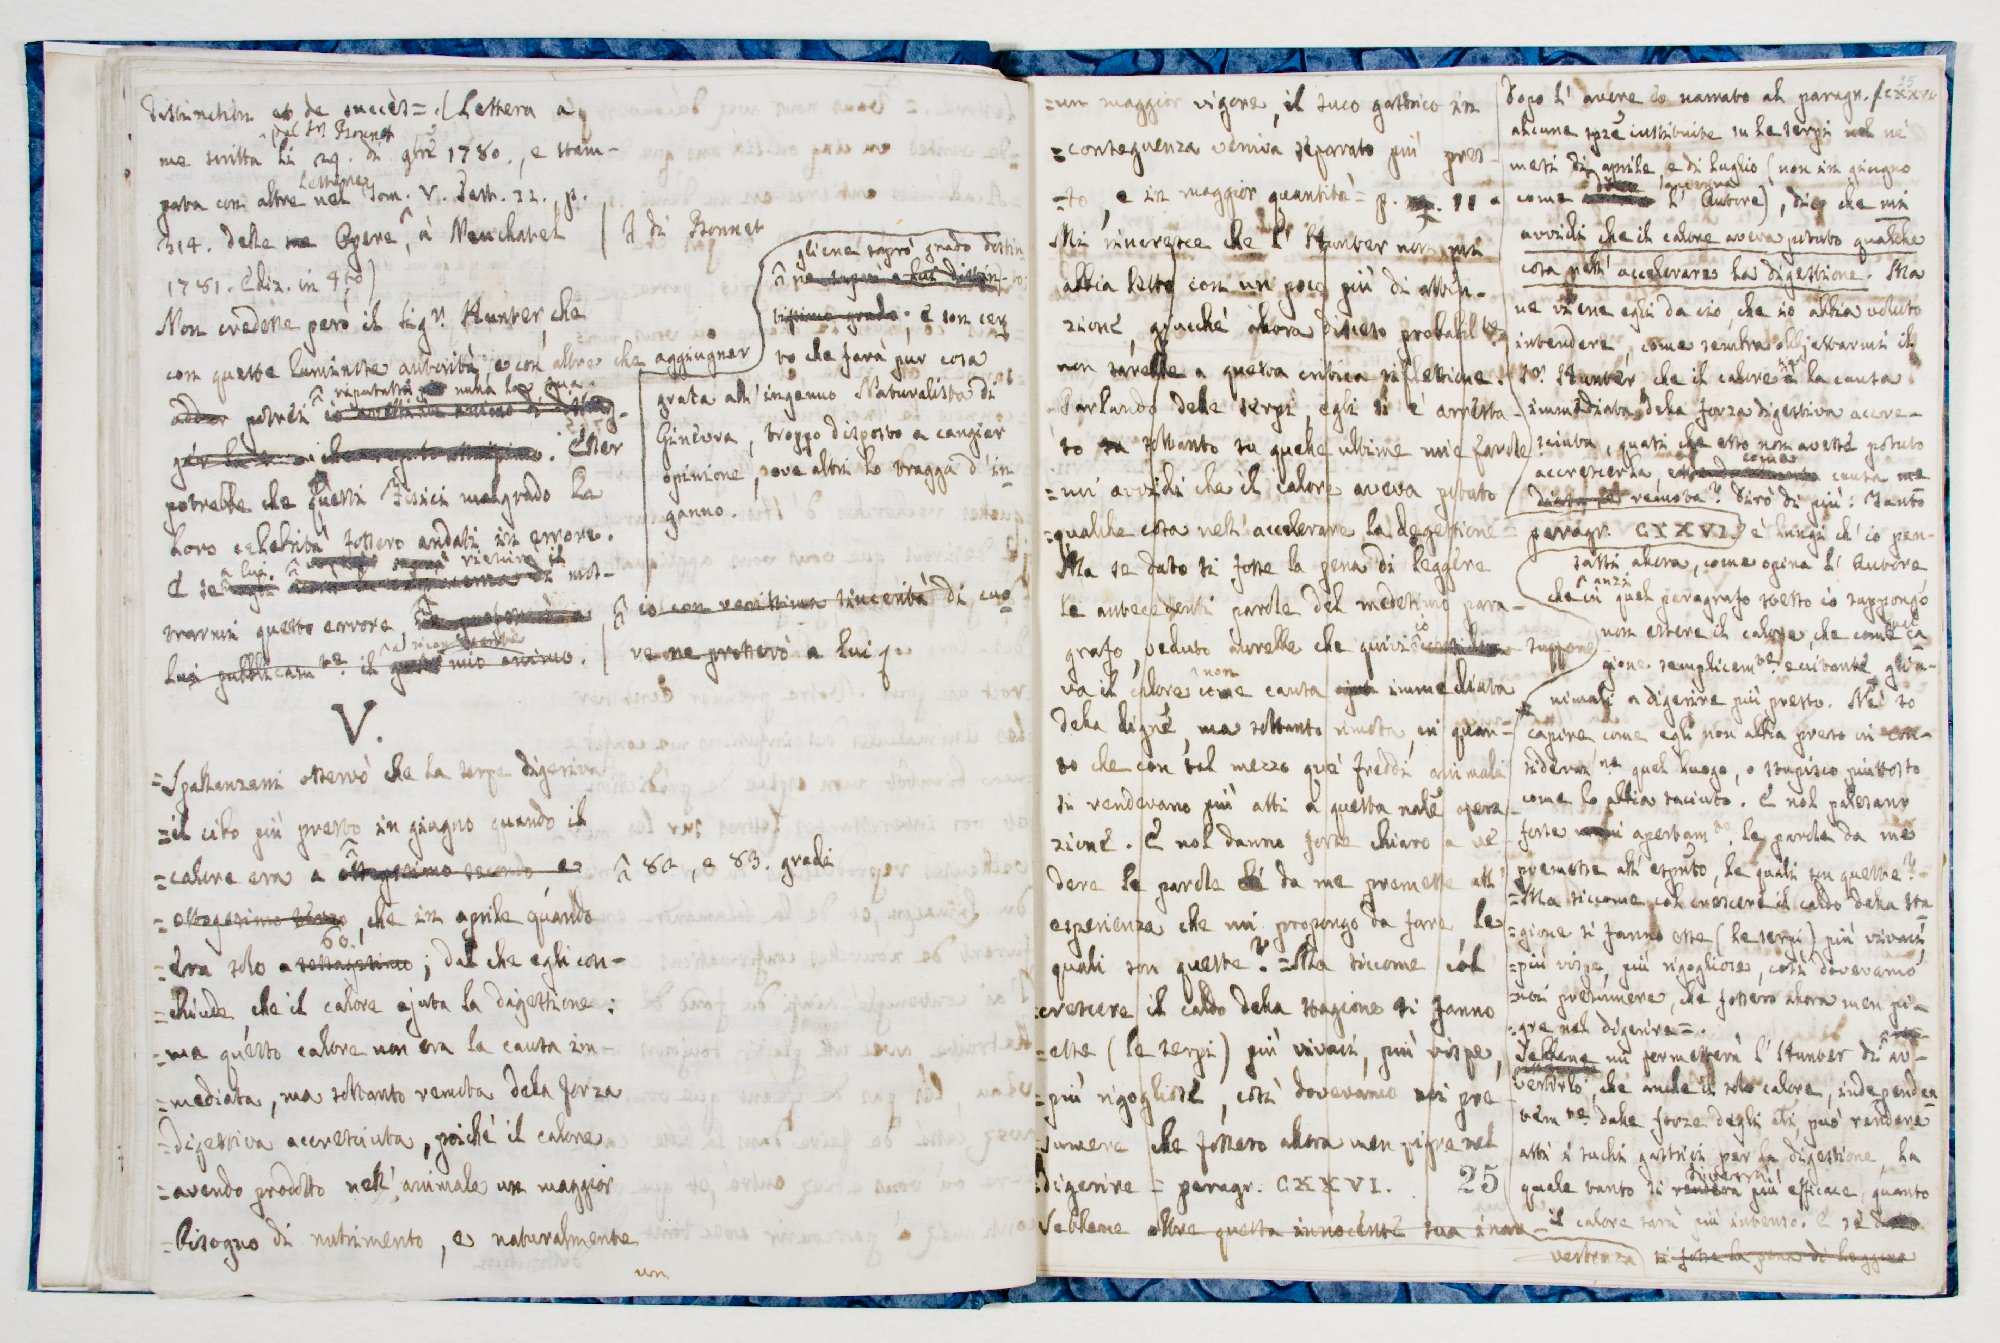 distinction et de succès=. (Lettera a
dal Sr. Bonnet
me scritta li 29. di 9bre 1780., e stam-
Lettere
pata con altre nel Tom. V. Part. 22., p.
314. delle me Opere, à Neuchatel
/ di Bonnet
1781. Ediz. in 4to)
Non credesse però il Sigr. Hunter, che
con queste luminose autorità, e con altre che aggiugner
riputassi nulla la sua
potrei
. Esser
potrebbe che questi Fisici malgrado la
loro celebrità fossero andati in errore.
a lui riesirà il
E se di mos-
trarmi questo errore,
a riconoscere
lui pubblicamte. il mio animo.
gliene saprò grado distin
ne sapro a lui distin-
tissimo grado; e son cer
to che farà pur cosa
grata all'ingenuo Naturalista di
Ginevra, troppo disposto a cangiar
opinione, ove altri lo tragga d'in
ganno.
io con verissima sincerità di cuo
re ne protesto a lui
V.
=Spallanzani osservò che la serpe digeriva
=il cibo più presto in giugno quando il
=calore era a ottogesimo secondo e
82, e 83. gradi
=ottogesimo terzo, che in aprile quando
60.
=era solo a sessagesimo; dal che egli con-
=chiude che il calore ajuta la digestione:
=ma questo calore non era la causa im-
=mediata, ma soltanto remota della forza
=digestiva accresciuta, poichè il calore
=avendo prodotto nell'animale un maggior
=bisogno di nutrimento, e naturalmente
un
=un maggior vigore, il suco gastrico in
=conseguenza veniva separato più pres-
=to, e in maggior quantità= p. 11
Mi incresce che l'Hunter non mi
abbia letto con un poco più di atten-
zione, giacchè allora disceso probabilte.
non sarebbe a questa critica riflessione.
Parlando delle serpi, egli si è arresta-
to soltanto su quelle ultime mie parole
=mi avvidi che il calore aveva potuto
=qualche cosa nell'accelerare la digestione=
Ma se dato si fosse la pena di leggere
le antecedenti parole del medesimo para-
grafo, veduto avrebbe che quivi io suppone
non
va il calore come causa immediata
della digne, ma soltanto remota, in quan-
to che con tal mezzo que' freddi animali
si rendevano più atti a questa nale opera
zione. E nol danno forse chiaro a ve
dere le parole da me premesse all'
esperienza che mi propongo da fare le
quali son queste? =Ma siccome col
crescere il caldo della stagione si fanno
=esse (le serpi) più vivaci, più vispe,
=più rigogliose, così dovevamo noi pre
=sumere che fossero allora men pigre nel
digerire= paragr. CXXVI.
25
Sebbene oltre questa innocente sua inav
vertenza si fosse la pena di leggere
25
Dopo l'avere io narrato al paragr. CXXVI
alcune spze instituite su le serpi nel ne'
mesi di aprile, e di luglio (non in giugno
come l'Autore), dico che mi
avvidi che il calore aveva potuto qualche
cosa nell'accelerare la digestione. Ma
ne viene egli da ciò, che io abbia voluto
intendere, come sembra obbjettarmi il
Sr. Hunter, che il calore sia la causa
immediata della forza digestiva accre-
sciuta, quasi che esso non avesse potuto
come
accrescerla causa
remota? Dirò di più: Tanto
paragr. CXXVI. è lungi ch'io pen-
sassi allora, come opina l'Autore
anzi
che in quel paragrafo stesso io suppongo
non essere il calore, che come ca
gione semplicemte. eccitante gli a-
nimali a digerire più presto. Nè so
capire come egli non abbia preso in con-
siderazne. quel luogo, o stupisco piuttosto
come lo abbia taciuto. E nol palesano
forse apertamte. le parole da me
premesse all'espmto, le quali son queste?
=Ma siccome col crescere il caldo della sta
=gione si fanno esse (le serpi) più vivaci
=più vispe, più rigogliose, così dovevamo
=noi presumere, che fossero allora men pi-
=gre nel digerire=.
Sebbene mi permetterà l'Hunter di av-
vertirlo, che anche il solo calore, independen
temte. dalle forze degli ati, può rendere
atti i suchi gastrici per la digestione, la
diverrà
quale tanto di renderà più efficace, quanto
il calore sarà più intenso. E se